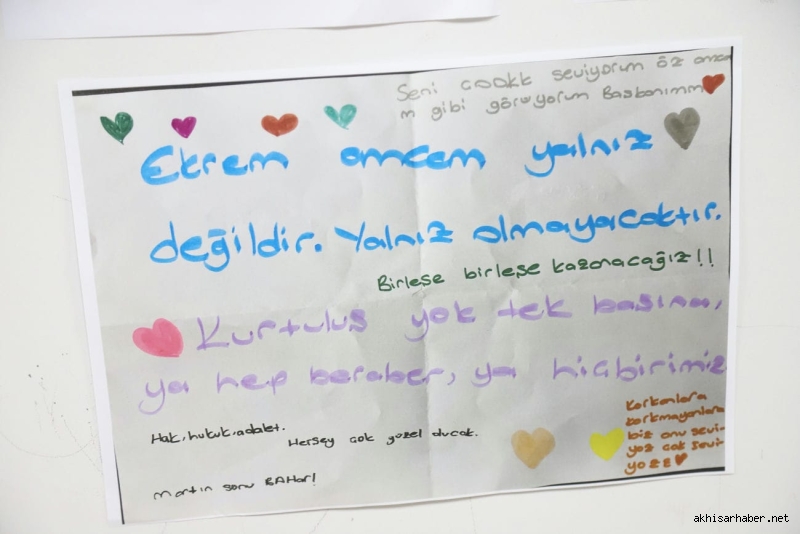 Seni çookk seviyorum öz amca
m gibi görüyorum Başkanımm
Ekrem amcam yalnız
değildir. Yalnız olmayacaktır.
Birleşe birleşe kazanacağız!!
Kurtuluş yok tek başına,
ya hep beraber, ya hiçbirimiz
Hak, hukuk, adalet.
Herşey çok güzel olucak.
Martın sonu BAHar!
Korkanlara
korkmayanlara
biz onu sevi-
yoz çok sevi-
yoz
akhisarhaber.net